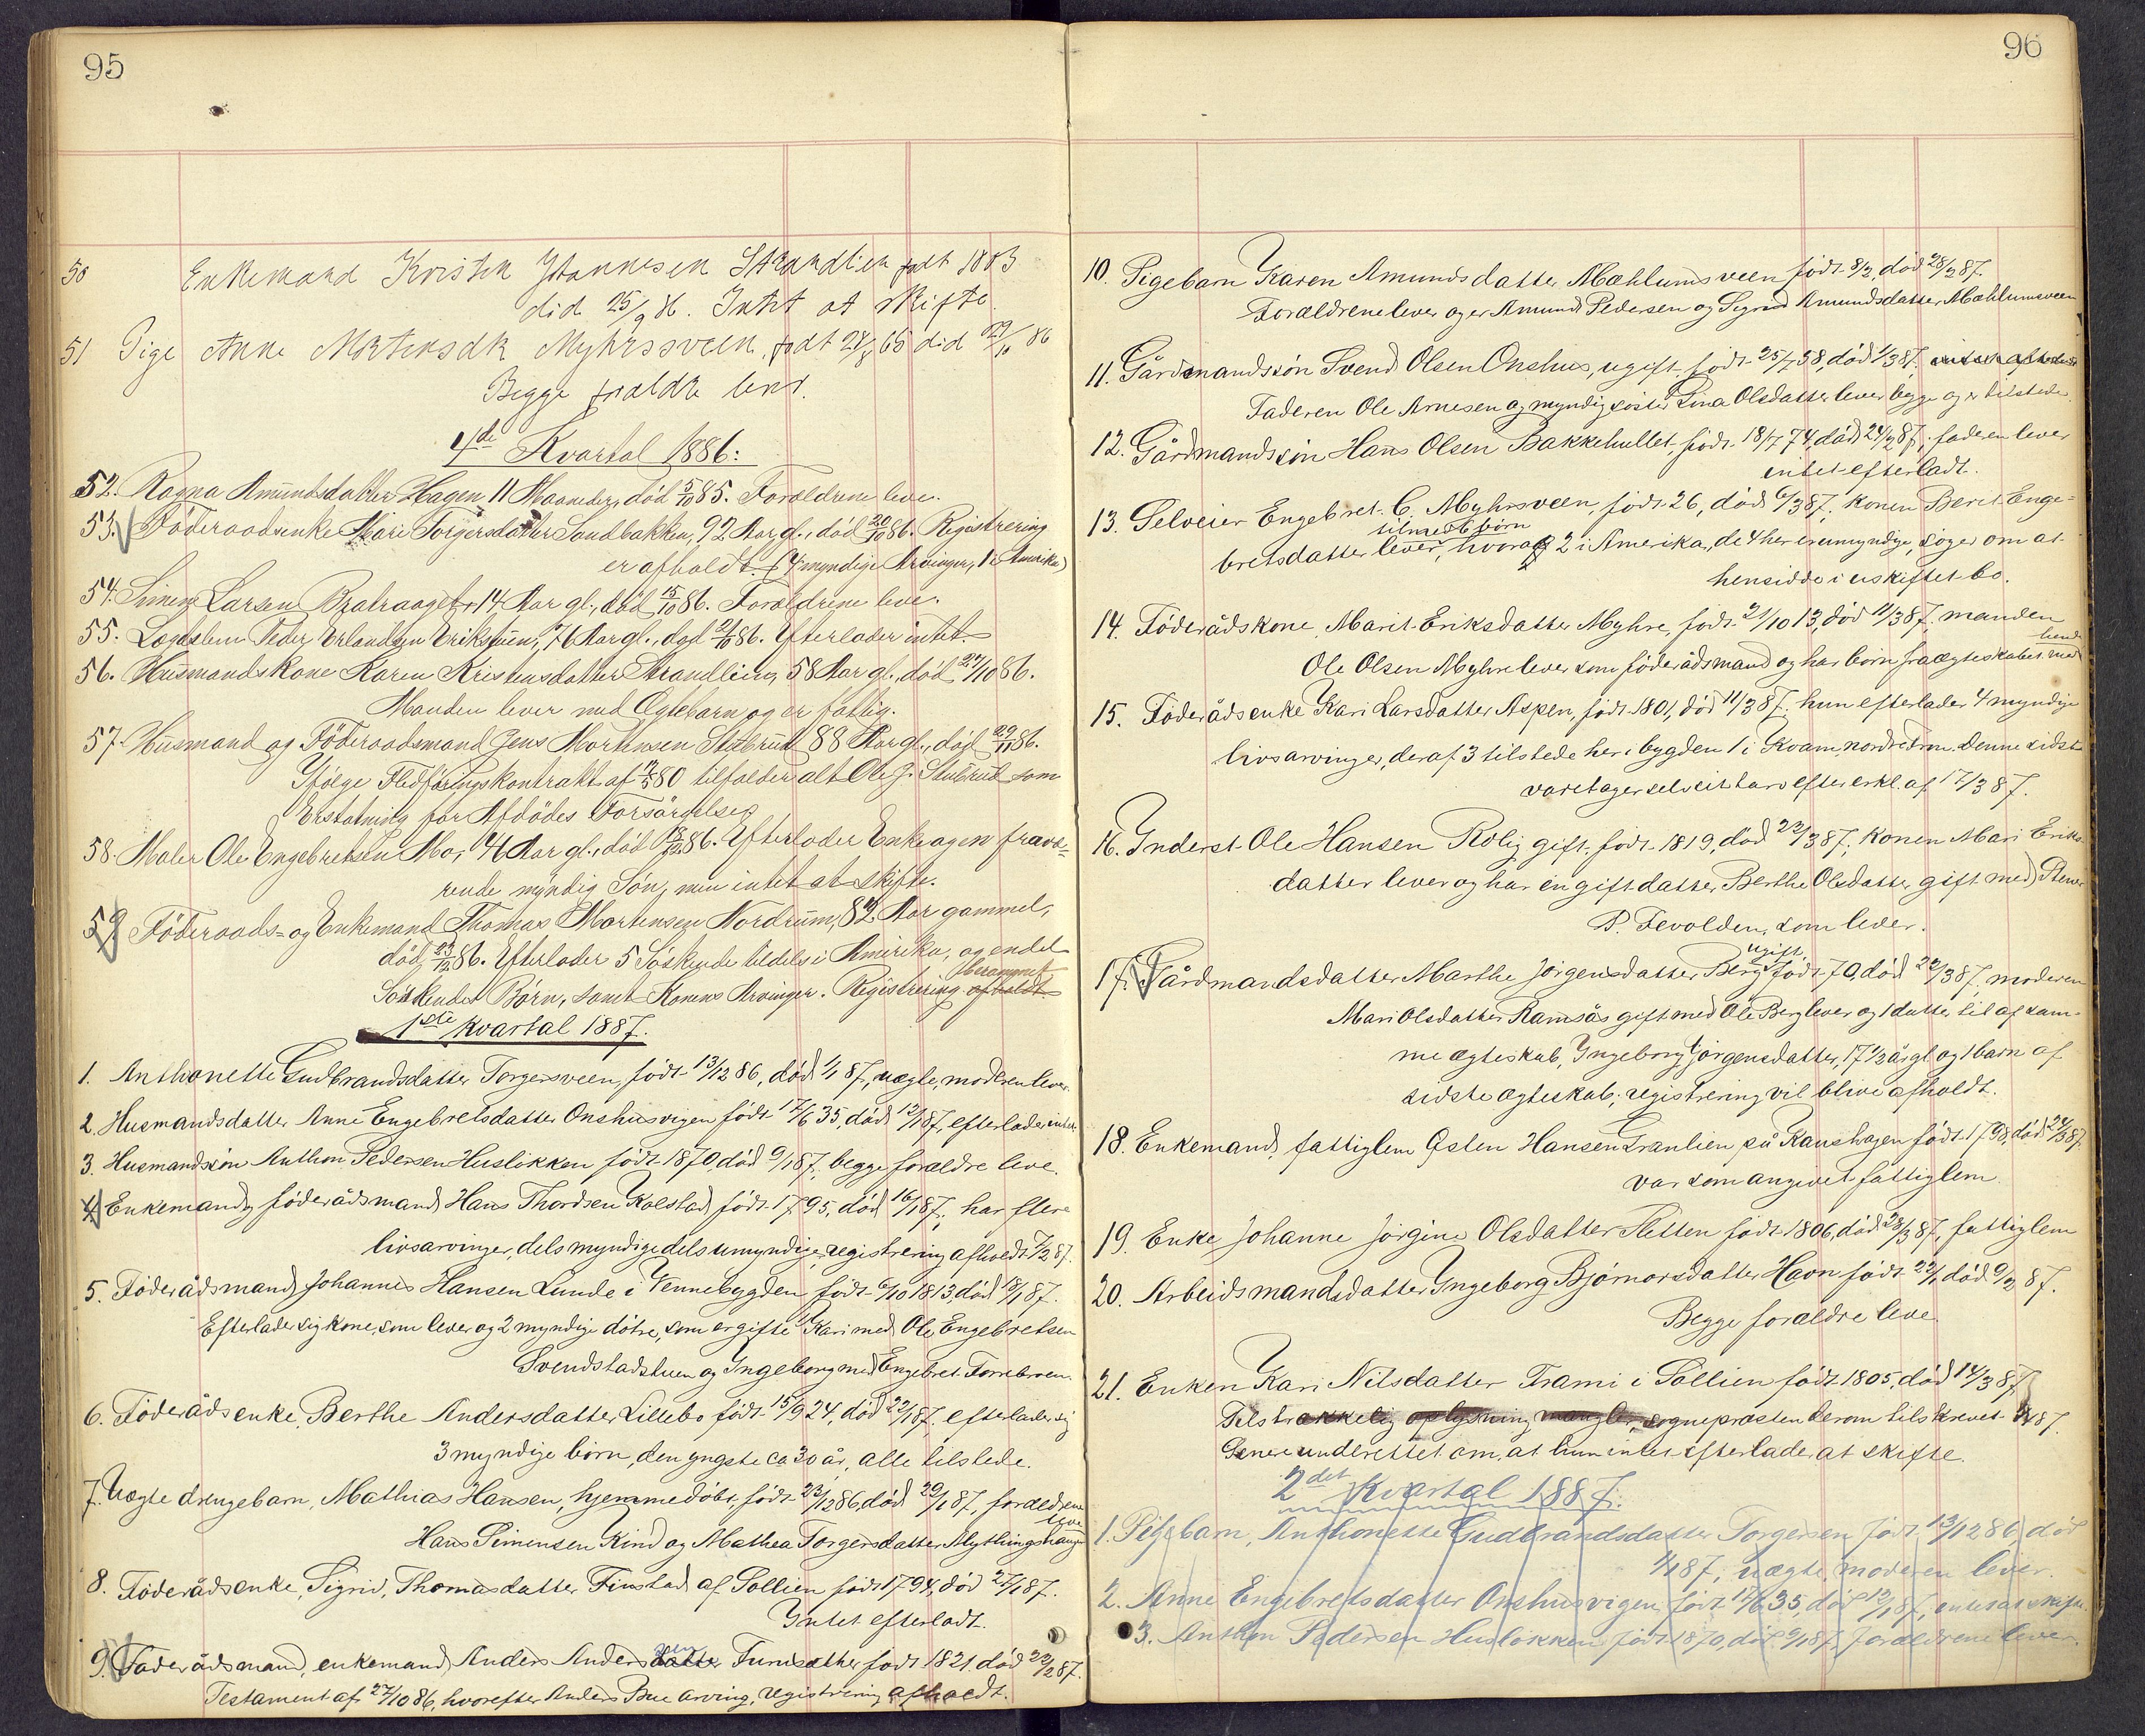 95
50 Enkemand Kristen Johannesen Strandlien født 1803
død 25/9 86. Intet at skifte
51 Pige Anne Mortensdtr Myhrssveen, født 28/8 65 død 29/10 86
Begge forældre lever.
4de Kvartal 1886:
52. Ragna Amundsdatter Hagen 11 Maaneder, død 5/10 85. Forældrene leve.
53. Föderaadsenke Mari Torgersdatter Sandbakken, 92 Aar gl., död 20/10 86. Registrering
er afholdt. (4 myndige Arvinger, 1 i Amerika)
54. Simen Larsen 14 Aar gl., död 15/10 86. Forældrene leve.
55. Lægdslem Peder Erlandsen Erikstuen, 76 Aar gl., död 21/10 86. Efterlader intet.
56. Husmandskone Karen Kristensdatter Strandlien, 58 Aar gl., död 27/10 86.
Manden lever med Egtebarn og er fattig.
57. Husmand og Föderaadsmand Jens Mortensen Stubrud 88 Aar gl., död 29/11 86.
Ifölge Fledföringskontrakt af 80 tilfalder alt Ole J. Stubrud som
Erstatning for Afdödes Forsörgelse.
58. Maler Ole Engebretsen Mo, Aar gl., död 86. Efterlader Enke og en fravæ-
rende myndig Sön, men intet at skifte.
59 Föderaads- og Enkemand Thomas Mortensen Nordrum, Aar gammel,
död 23/12 86. Efterlader 5 Söskende tildels i Amerika, og endel
berammet
Söskendes Börn, samt Konens Arvinger. Registrering afholdt
1ste Kvartal 1887.
1. Anthonette Gudbrandsdatter Torgersveen, født 13/12 86, død 1/1 87, uægte, moderen lever.
2. Husmandsdatter Anne Engebretsdatter Onshusvigen født 17/6 35, død 12/1 87, efterlader intet
3. Husmandsøn Anthon Pedersen Husløkken født 1870, død 9/1 87, begge forældre leve.
4 Enkemand, føderådsmand Hans Thordsen Kolstad født 1795, død 16/1 87, har flere
livsarvinger, dels myndige dels umyndige, registrering afholdt 7/2 87.
5. Føderådsmand Johannes Hansen Lunde i Vennebygden født 6/10 1813, død 18/1 87.
Efterlader sig kone, som lever og 2 myndige døtre, som er gifte Kari med Ole Engebretsen
Svendstadstuen og Ingeborg med Engebret
6. Føderådsenke, Berthe Andersdatter Lillebo født 15/9 24, død 22/1 87, efterlader sig
3 myndige børn, den yngste ca 30 år, alle tilstede.
7. Uægte drengebarn, Mathias Hansen, hjemmedøbt, født 23/12 86, død 29/1 87, forældrene
leve
Hans Simensen Rind og Mathea Torgersdatter
8. Føderådsenke, Sigrid, Thomasdatter Finstad af Sollien født 1794, død 27/1 87.
Intet efterladt.
9. Føderådsmand, enkemand Anders Andersdattersen født 1821 død 22/2 87.
Testament af 27/10 86, hvorefter Anders Bue arving, registrering afholdt.
96
10. Pigebarn Karen Amundsdatter Mæhlumsveen født 8/2, død 28/2 87.
Forældrene lever og er Amund Pedersen og Sigrid Amundsdatter Mæhlumsveen
11. Gårdmandsøn Svend Olsen Onshus, ugift, født 25/7 58, død 1/3 87.
Faderen Ole Arnesen og myndig søster Lina Olsdatter lever begge og er tilstede.
12. Gårdmandsøn Hans Olsen Bakkehullet, født 18/7 74, død 24/2 87; faderen lever
intet efterladt.
13. Selveier Engebret C. Myhrsveen, født 26, død 6/3 87, konen Berit Enge=
tilmed 6 børn
bretsdatter lever, hvoraf 2 i Amerika, de 4 her er umyndige, søger om at
hensidde i uskiftet bo.
14. Føderådskone, Marit Eriksdatter Myhre, født 21/10 13, død 11/3 87, manden
hende
Ole Olsen Myhre lever som føderådsmand og har børn fra ægteskabet med
15. Føderådsenke Kari Larsdatter Aspen, født 1801, død 11/3 87, hun efterlader 4 myndige
livsarvinger, deraf 3 tilstede her i bygden 1 i Kvam, nordre Frøn. denne sidste
varetager selv sit tarv efter erkl. af 17/3 87.
16. Inderst Ole Hansen Rolig gift, født 1819, død 23/3 87, konen Mari Eriks-
datter lever og har en gift datter Berthe Olsdatter gift med
P. Tevolden, som lever.
ugift,
17. Gårdmandsdatter Marthe Jørgensdatter Berg født 70, død 22/3 87, moderen
Mari Olsdatter Ramsås gift med Ole Berg lever og 1 datter til af sam-
me ægteskab, Ingeborg Jørgensdatter, 17 1/2 år gl. og 1 barn af
sidste ægteskab; registrering vil blive afholdt.
18. Enkemand, fattiglem Østen Hansen Tranlien på Kanshagen født 1798, død 24/3 87.
var som angivet fattiglem.
19. Enke Johanne Jørgine Olsdatter Sletten født 1806, død 28/3 87, fattiglem
20. Arbeidsmandsdatter Ingeborg Bjørnorsdatter Havn født 22/1, død 9/2 87.
Begge forældre leve.
21. Enken Kari Nilsdatter Trami i Sollien født 1805, død 14/3 87.
Tilstrækkelig oplysning mangler, sognepræsten derom tilskrevet 87.
Senere underrettet om, at hun intet efterlader at skifte.
2det Kvartal 1887.
1. Pigebarn, Anthonette Gudbrandsdatter Torgersen født 13/12 86, død
1/1 87, uægte, moderen lever.
2. Anne Engebretsdatter Onshusvigen, født 17/6 35, død 12/1 87, intet at skifte.
3. Anthon Pedersen Husløkken født 1870, død 9/1 87. Forældrene lever.